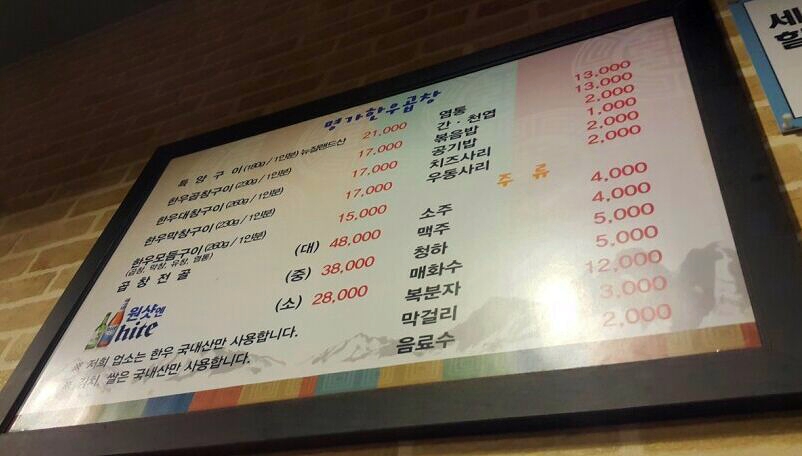 명가한우곱창
특 양 구 이 (180g / 1인분) 뉴질랜드산 21,000
한우곱창구이 (230g / 1인분) 17,000
한우대창구이 (260g / 1인분) 17,000
한우막창구이 (230g / 1인분) 17,000
한우모듬구이 (260g / 1인분) 15,000
(곱창, 막창, 유창, 염통)
곱 창 전 골 (대) 48,000
(중) 38,000
(소) 28,000
원샷엔
hite
※ 저희 업소는 한우 국내산만 사용합니다.
※ 김치, 쌀은 국내산만 사용합니다.
염통 13,000
간 · 천엽 13,000
볶음밥 2,000
공기밥 1,000
치즈사리 2,000
우동사리 2,000
주 류
소주 4,000
맥주 4,000
청하 5,000
매화수 5,000
복분자 12,000
막걸리 3,000
음료수 2,000